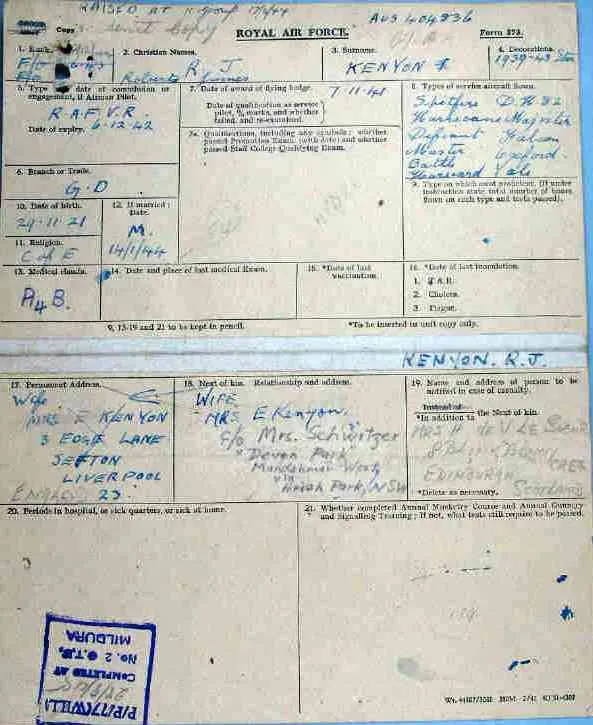 RAISED AT
AUS 404836
Copy
ROYAL AIR FORCE.
Form 373.
1. Rank.
2. Christian Names.
3. Surname.
4. Decorations.
R. J
Robert James
KENYON
1939-43 Star
5. Type and date of commission or engagement, if Airman Pilot.
R.A.F.V.R.
Date of expiry. 6-12-42
7. Date of award of flying badge. 7-11-41
Date of qualification as service pilot, % marks, and whether failed and re-examined.
7a. Qualifications, including any symbols; whether passed Promotion Exam. (with date) and whether passed Staff College Qualifying Exam.
8. Types of service aircraft flown.
Spitfire D.H.82
Hurricane Magister
Defiant
Master Oxford.
Battle
Harvard Yale
6. Branch or Trade.
G.D.
9. Type on which most proficient. (If under instruction state total number of hours flown on each type and tests passed).
10. Date of birth.
29-11-21
12. If married: Date.
M.
14/1/44
11. Religion.
C of E
13. Medical classfn.
A4B.
14. Date and place of last medical Exam.
15. *Date of last vaccination.
16. *Date of last inoculation.
1. T.A.B.
2. Cholera.
3. Plague.
9, 13-19 and 21 to be kept in pencil.
*To be inserted in unit copy only.
KENYON. R.J.
17. Permanent Address.
Wife
MRS E KENYON
3 EDGE LANE
SEFTON
LIVERPOOL
ENGLAND 23
18. Next of kin. Relationship and address.
WIFE
MRS E Kenyon.
c/o Mrs. Schwitzer
"Devon Park"
West
via
Park, NSW
19. Name and address of person to be notified in case of casualty.
Instead of
*In addition to the Next of kin.
EDINBURGH
Scotland
*Delete as necessary.
20. Periods in hospital, or sick quarters, or sick at home.
21. Whether completed Annual Musketry Course and Annual Gunnery and Signalling Training; if not, what tests still require to be passed.
P/P/177(WILL)
COMPLETED AT
No. 2 O.T.U.
MILDURA